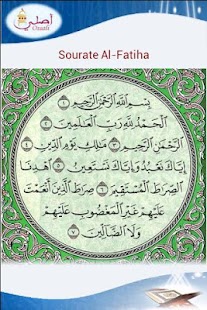 أصلي
Ousalli
Sourate Al-Fatiha
بِسْمِ ٱللَّهِ ٱلرَّحْمَٰنِ ٱلرَّحِيمِ ١
ٱلْحَمْدُ لِلَّهِ رَبِّ ٱلْعَٰلَمِينَ ٢
ٱلرَّحْمَٰنِ ٱلرَّحِيمِ ٣ مَٰلِكِ يَوْمِ ٱلدِّينِ ٤
إِيَّاكَ نَعْبُدُ وَإِيَّاكَ نَسْتَعِينُ ٥ ٱهْدِنَا
ٱلصِّرَٰطَ ٱلْمُسْتَقِيمَ ٦ صِرَٰطَ ٱلَّذِينَ أَنْعَمْتَ
عَلَيْهِمْ غَيْرِ ٱلْمَغْضُوبِ عَلَيْهِمْ
وَلَا ٱلضَّآلِّينَ ٧